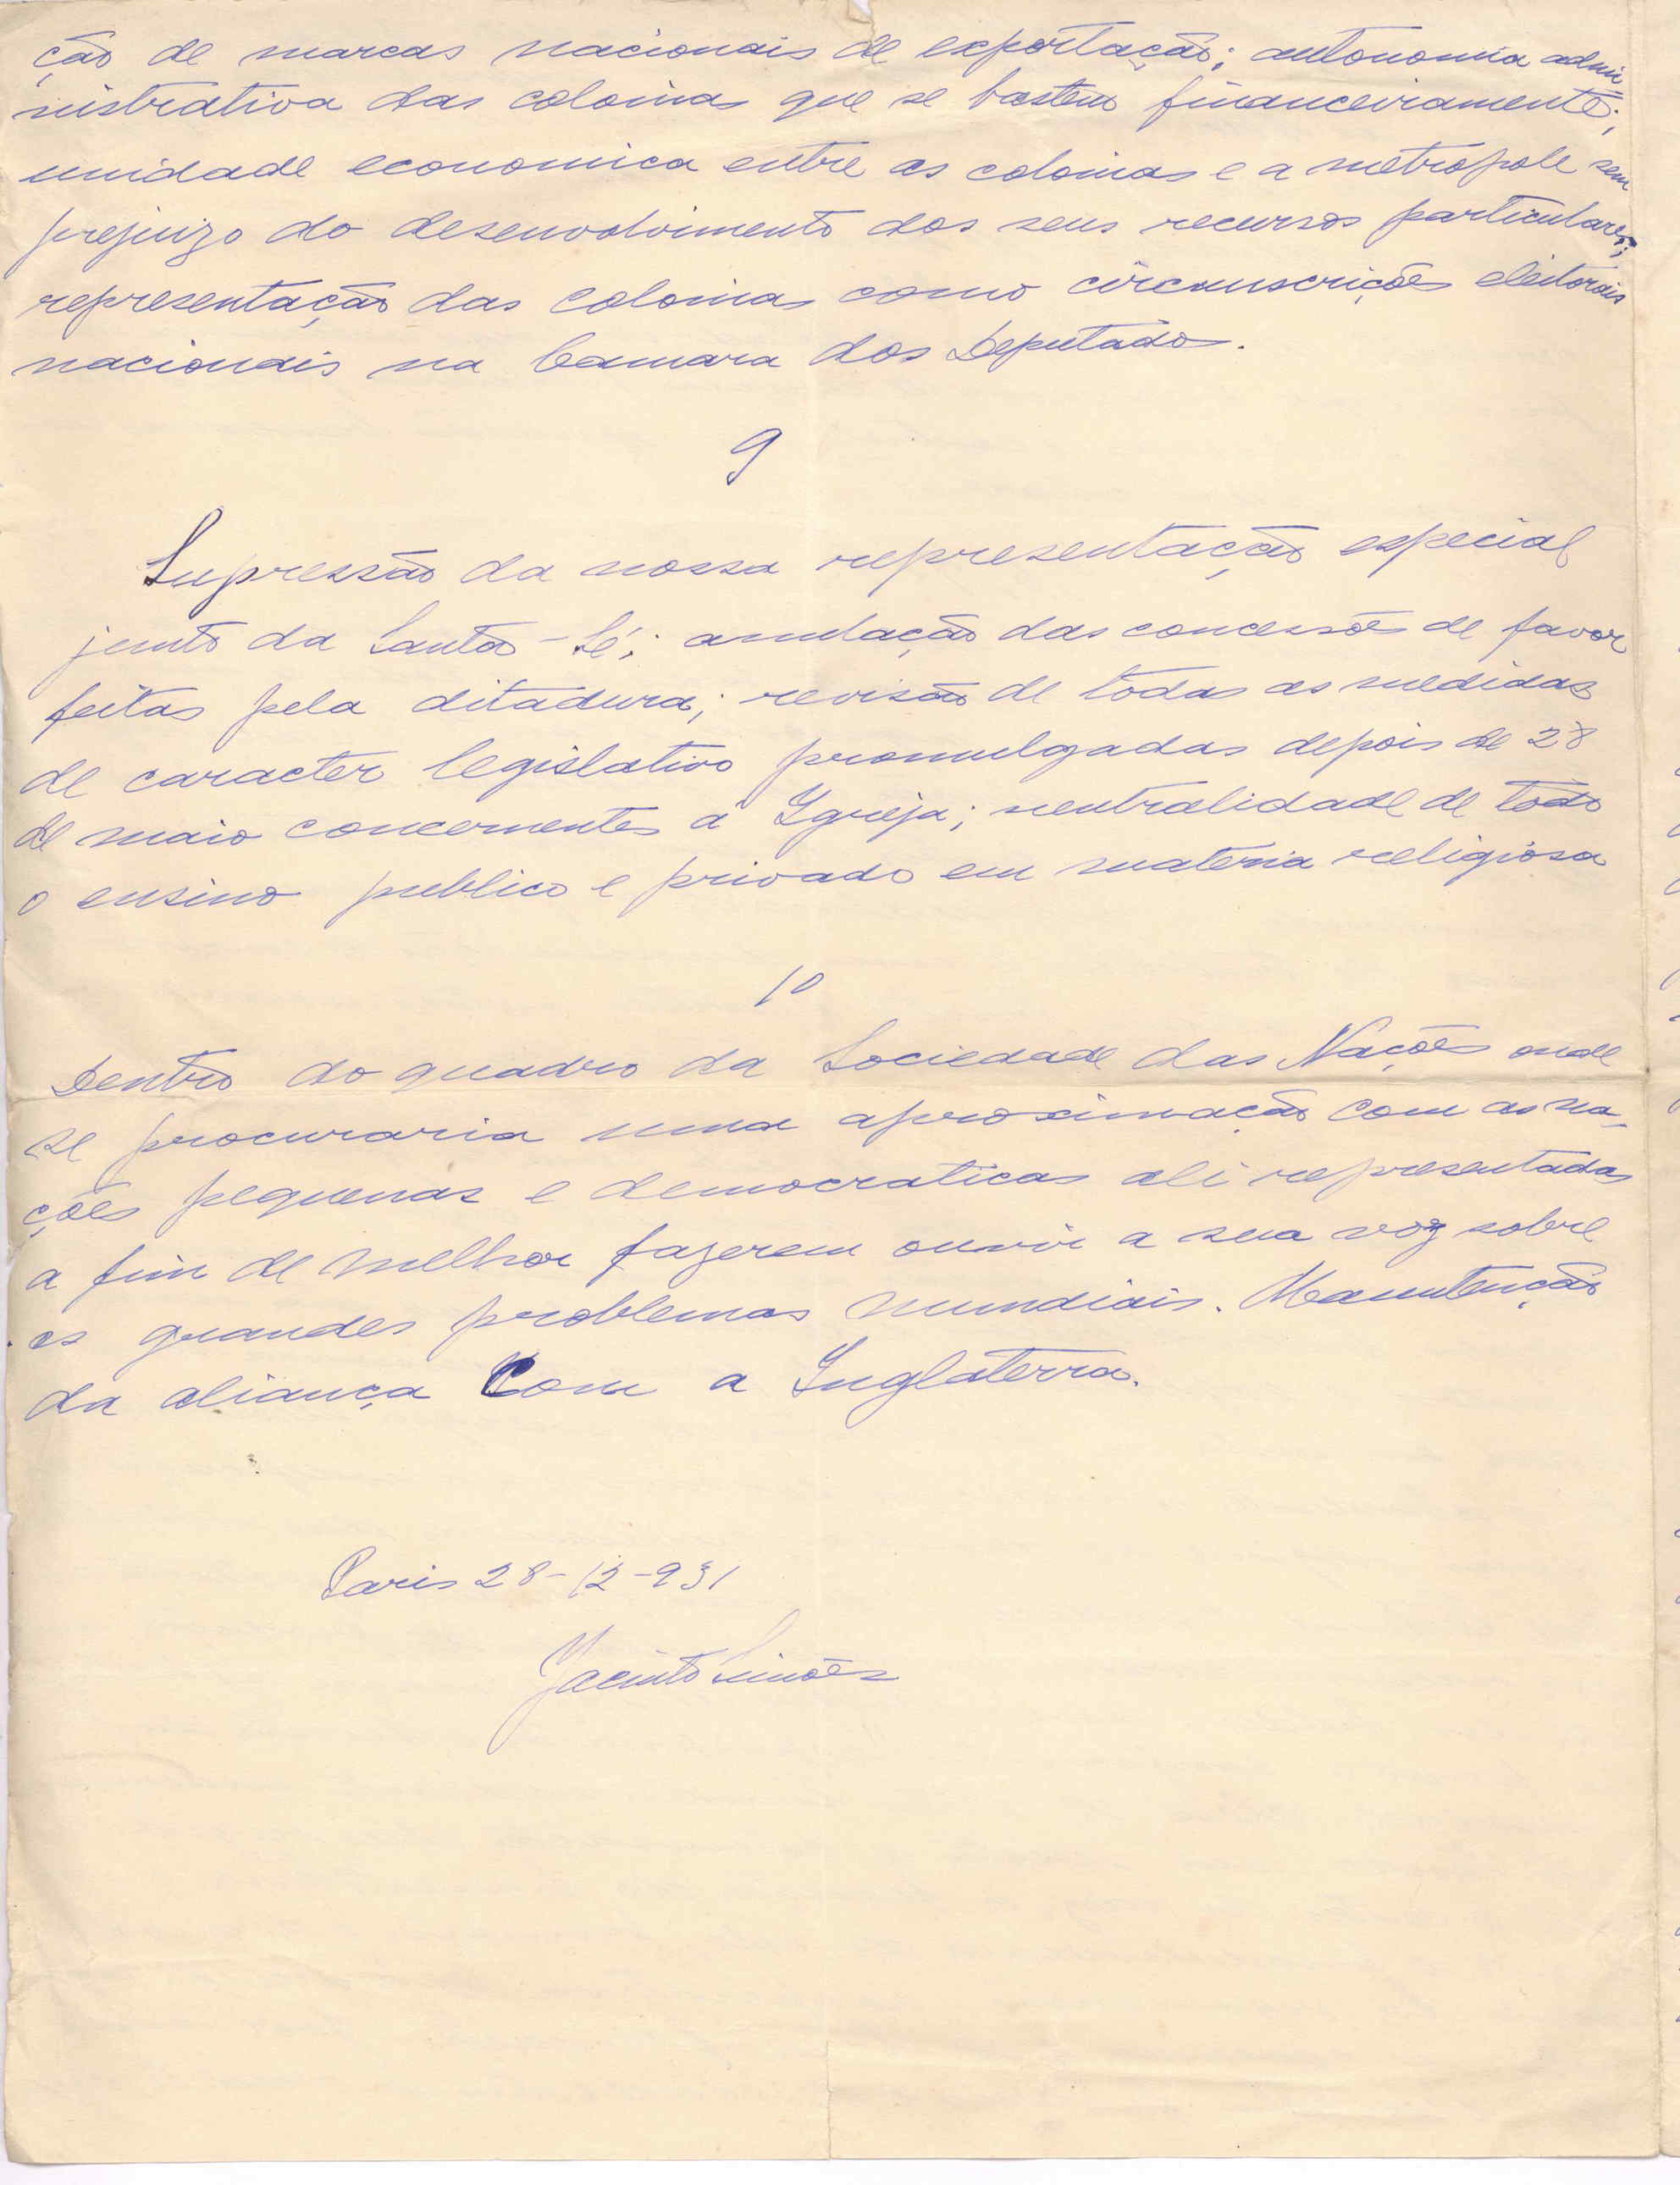 ção de marcas nacionais de exportação; autonomia admi=
nistrativa das colonias que se bastem financeiramente;
unidade economica entre as colonias e a metropole sem
prejuizo do desenvolvimento dos seus recursos particulares;
representação das colonias como circunscrições eleitorais
nacionais na Camara dos Deputados.
9
Supressão da nossa representação especial
junto da Santa-Sé; anulação das concessões de favor
feitas pela ditadura; revisão de todas as medidas
de caracter legislativo promulgadas depois de 28
de maio concernentes á Igreja; neutralidade de todo
o ensino publico e privado em materia religiosa
10
Dentro do quadro da Sociedade das Nações onde
se procuraria uma aproximação com as na-
ções pequenas e democraticas ali representadas
a fim de melhor fazerem ouvir a sua voz sobre
os grandes problemas mundiais. Manutenção
da aliança com a Inglaterra.
Paris 28-12-931
Jacinto Simões